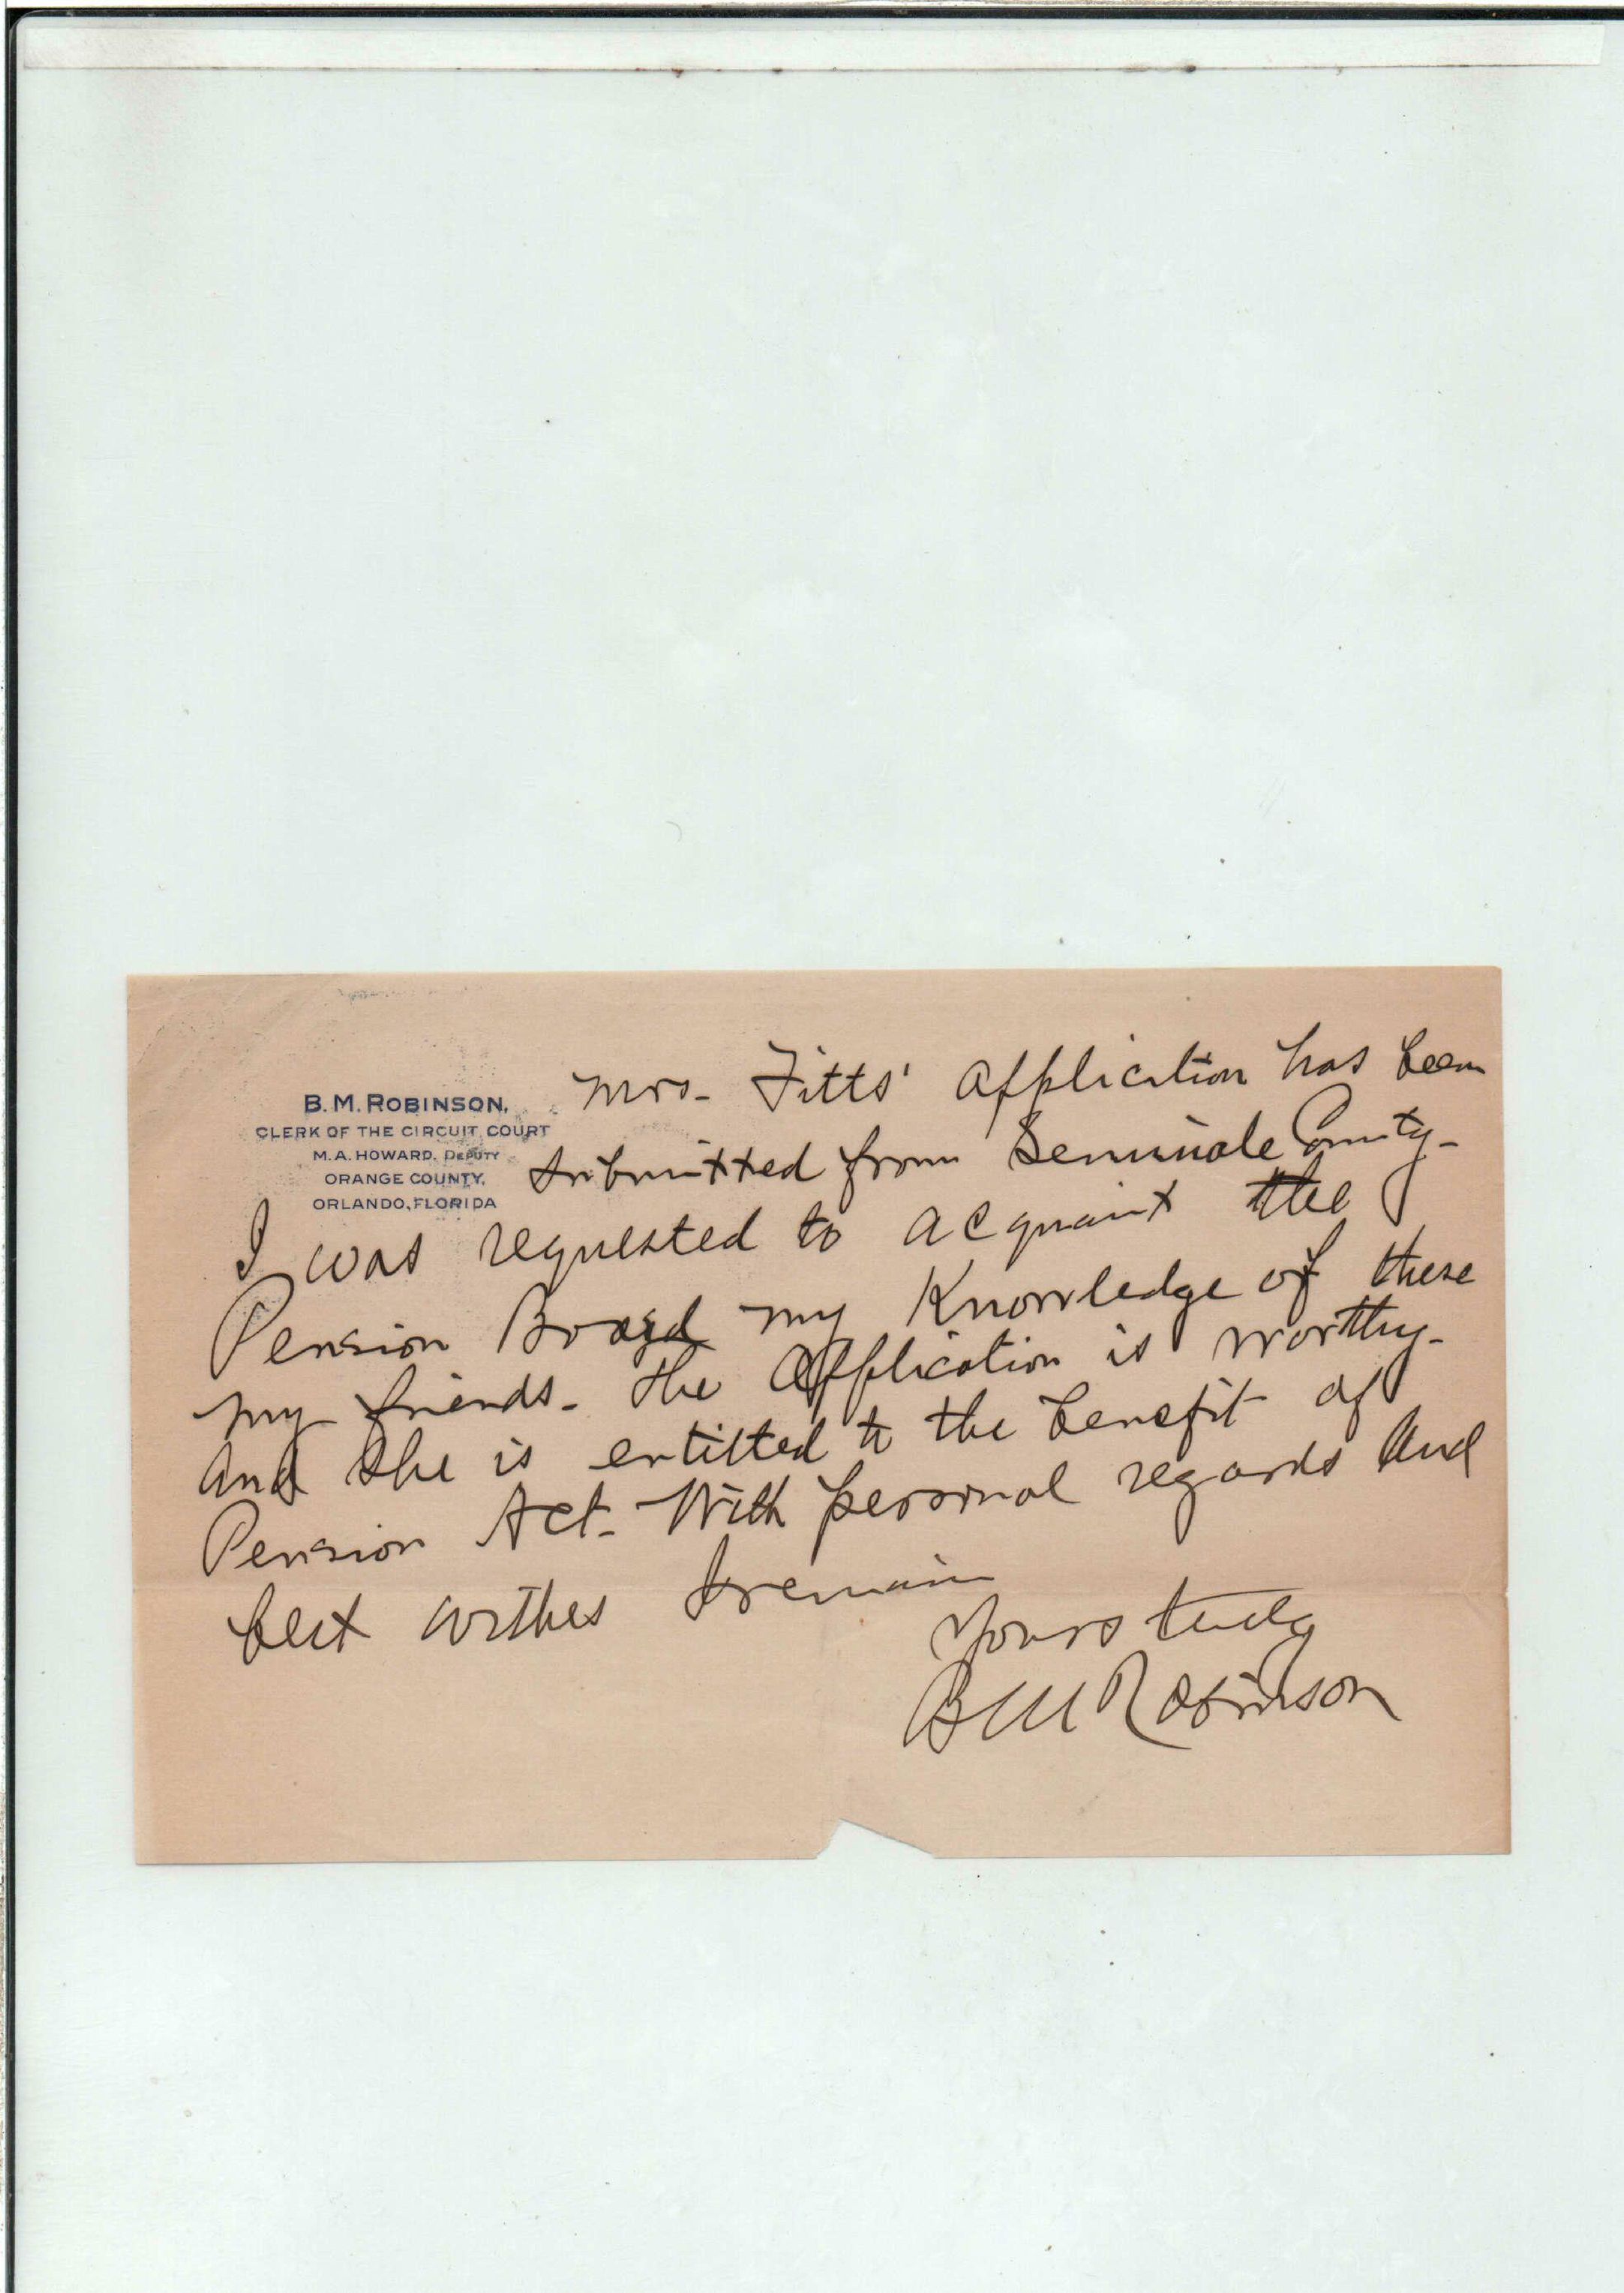 B. M. ROBINSON,
CLERK OF THE CIRCUIT COURT
M. A. HOWARD, DEPUTY
ORANGE COUNTY,
ORLANDO, FLORIDA
Mrs. Fitts' Application has been
submitted from Seminole County-
I was requested to acquaint the
Pension Board my Knowledge of these
my friends- the Application is worthy-
and she is entitled to the benefit of
Pension Act- With personal regards and
best wishes I remain
Yours truly
B M Robinson